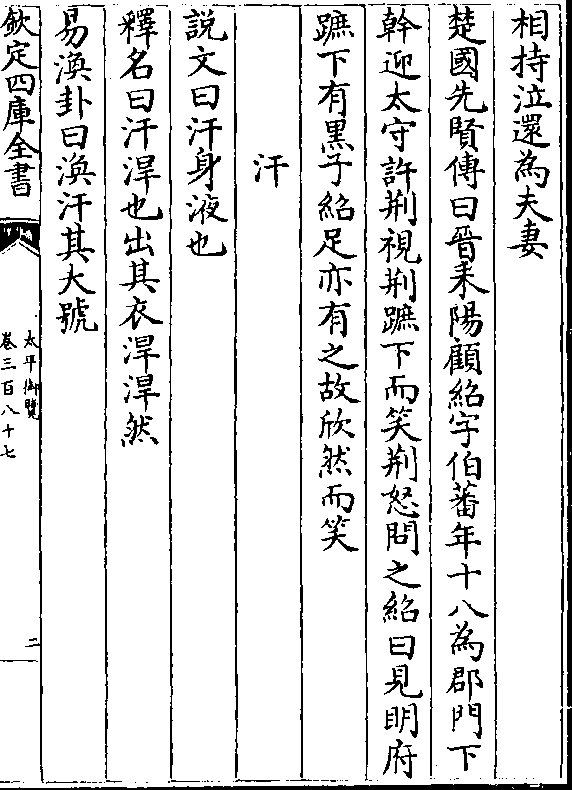 相持泣還為夫妻
楚國先賢傳曰晉耒陽顧紹字伯蕃年十八為郡門下
幹迎太守許荆視荆蹠下而笑荆怒問之紹曰見明府
蹠下有黒子紹足亦有之故欣然而笑
汗
説文曰汗身液也
釋名曰汗涆也出其衣涆涆然
易渙卦曰渙汗其大號
欽定四庫全書
太平御覽
卷三百八十七
二